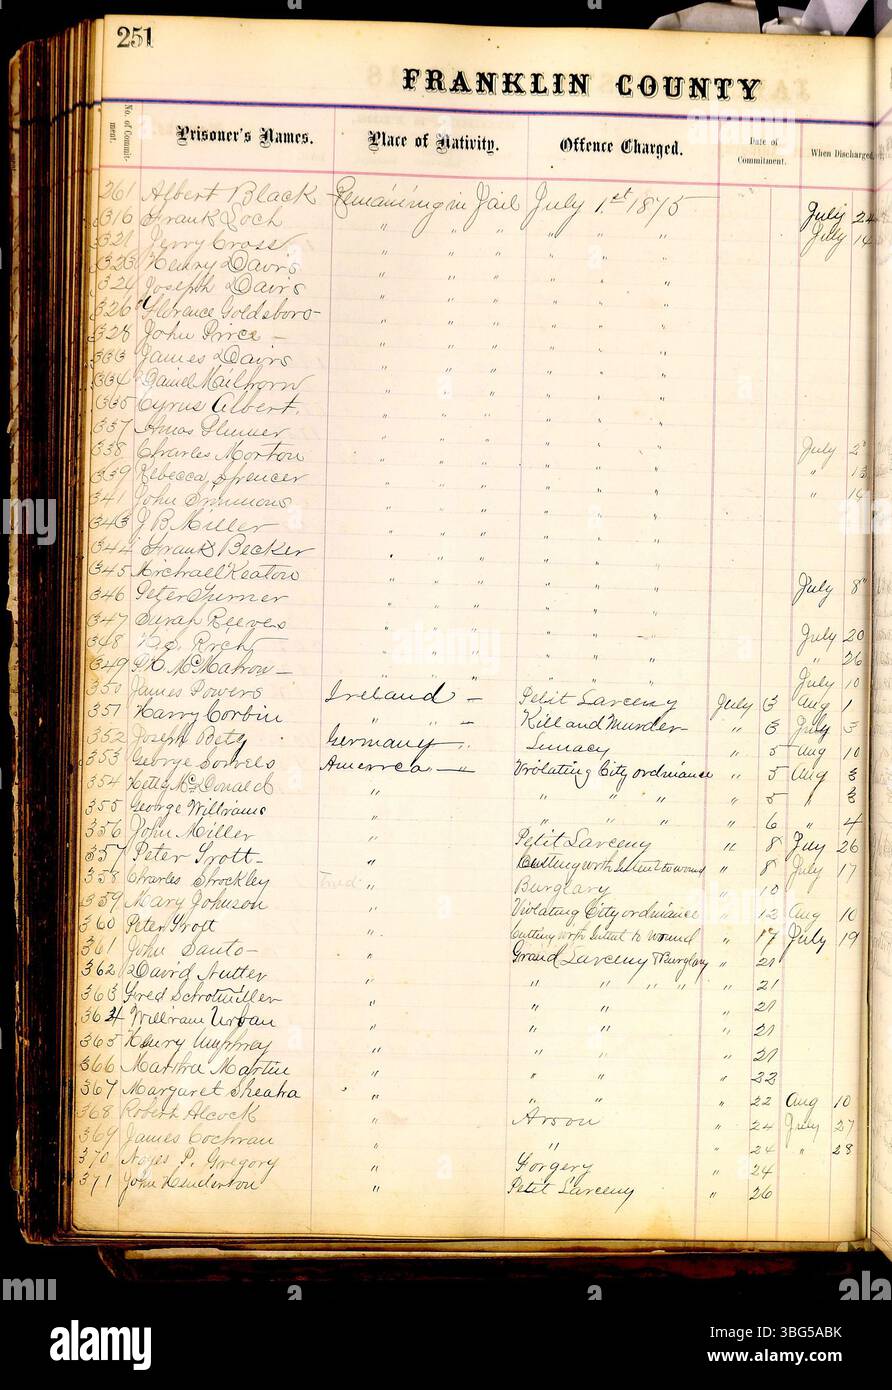 251
FRANKLIN COUNTY
No. of Commit-ment. Prisoner's Names. Place of Nativity. Offence Charged. Date of Commitment. When Discharged.
261 Albert Black - Remaining in Jail July 1.st 1875 July 24
316 Frank Loch " " " " " July 14
321 Jerry Cross " " " " "
323 Henry Davis " " " "
324 Joseph Davis " " " "
326 Florence Goldsboro- " " " "
328 John Pirce - " " " "
333 James Davis " " " "
334 Daniel " " " "
335 Cyrus Albert. " " " "
337 Amos " " " "
338 Charles Morton " " " " July 2"
339 Rebecca Spencer " " " " " 13
341 John Simmons " " " " " 14
343 J B Miller " " " "
344 Frank Becker " " " "
345 Michael Keaton " " " "
346 Peter Turner " " " " July 8"
347 Sarah Reeves " " " "
348 " " " " July 20
349 McMahon - " " " " " 26
July 10
350 James Powers Ireland - Petit Larceny July 3 Aug 1
351 Harry Corbin " " - Kill and Murder " 3 July 3
352 Joseph Betz Germany " Lunacy " 5 Aug 10
353 George Sorrels America - " Violating City ordinance " 5 Aug 3
354 Hetty McDonald " " " " " 5 " 3
355 George Williams " " " " " 6 " 4
356 John Miller " Petit Larceny " 8 July 26
357 Peter Trott- " Cutting with Intent to wound " 8 July 17
358 Charles Shockley " Burglary " 10
359 Mary Johnson " Violating City ordinance " 12 Aug 10
360 Peter Trott " Cutting with Intent to wound " 17 July 19
361 John Santo - " Grand Larceny & Burglary " 21
362 David Nutter " " " " " " 21
363 Fred " " " " 21
364 William Urban " " " " 21
365 Henry Umphrey " " " " 21
366 Martha Martin " " " " 22
367 Margaret Sheaha " " " " 22 Aug 10
368 Robert Alcock " Arson " 24 July 27
369 James Cochran " " " 24 " 28
370 Noyes P. Gregory " Forgery " 24
371 John Henderson " Petit Larceny " 26
alamy
Image ID: 3BG5ABK
www.alamy.com